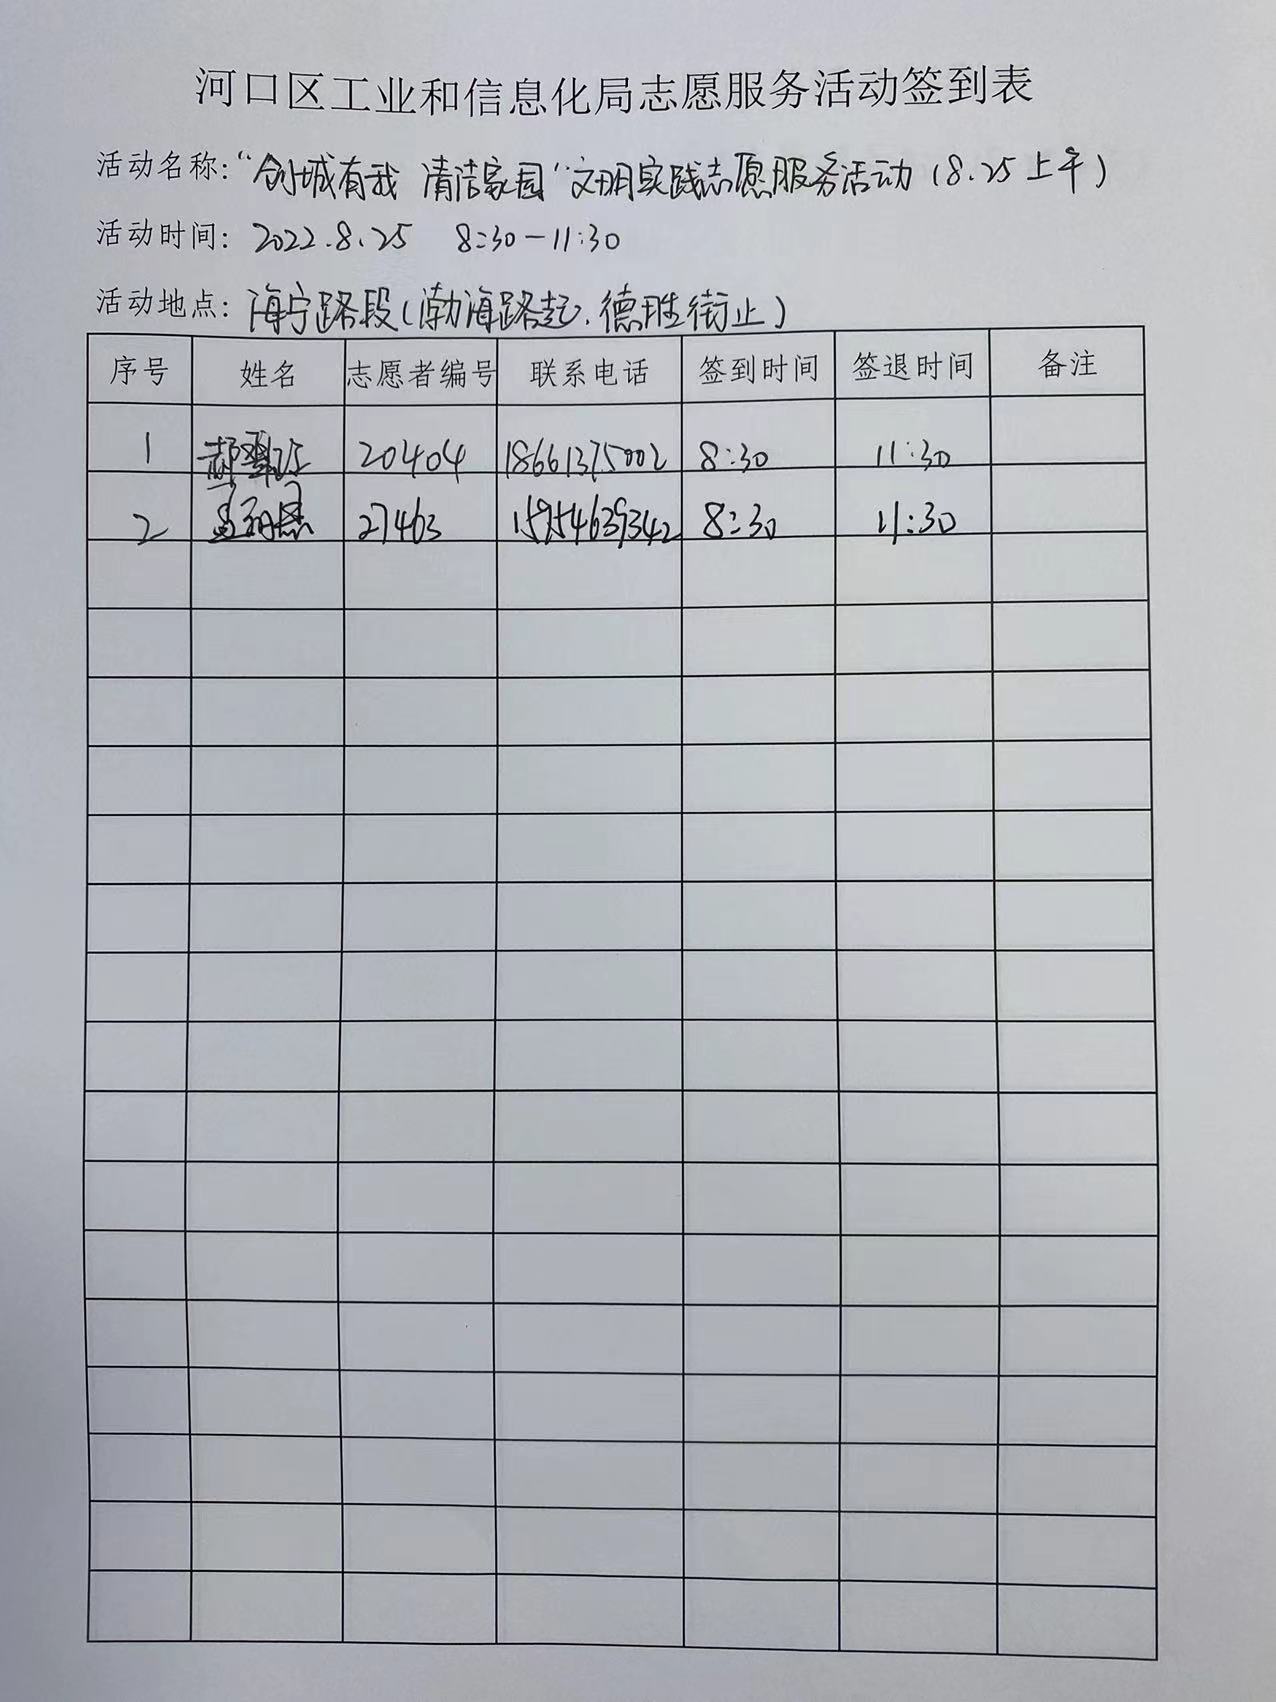 河口区工业和信息化局志愿服务活动签到表
活动名称：“创城有我 清洁家园”文明实践志愿服务活动（8.25上午）
活动时间：2022.8.25 8:30-11:30
活动地点：海宁路段（渤海路起、德胜街止）
序号 姓名 志愿者编号 联系电话 签到时间 签退时间 备注
1 20404 18661375002 8:30 11:30
2 27463 15954639342 8:30 11:30